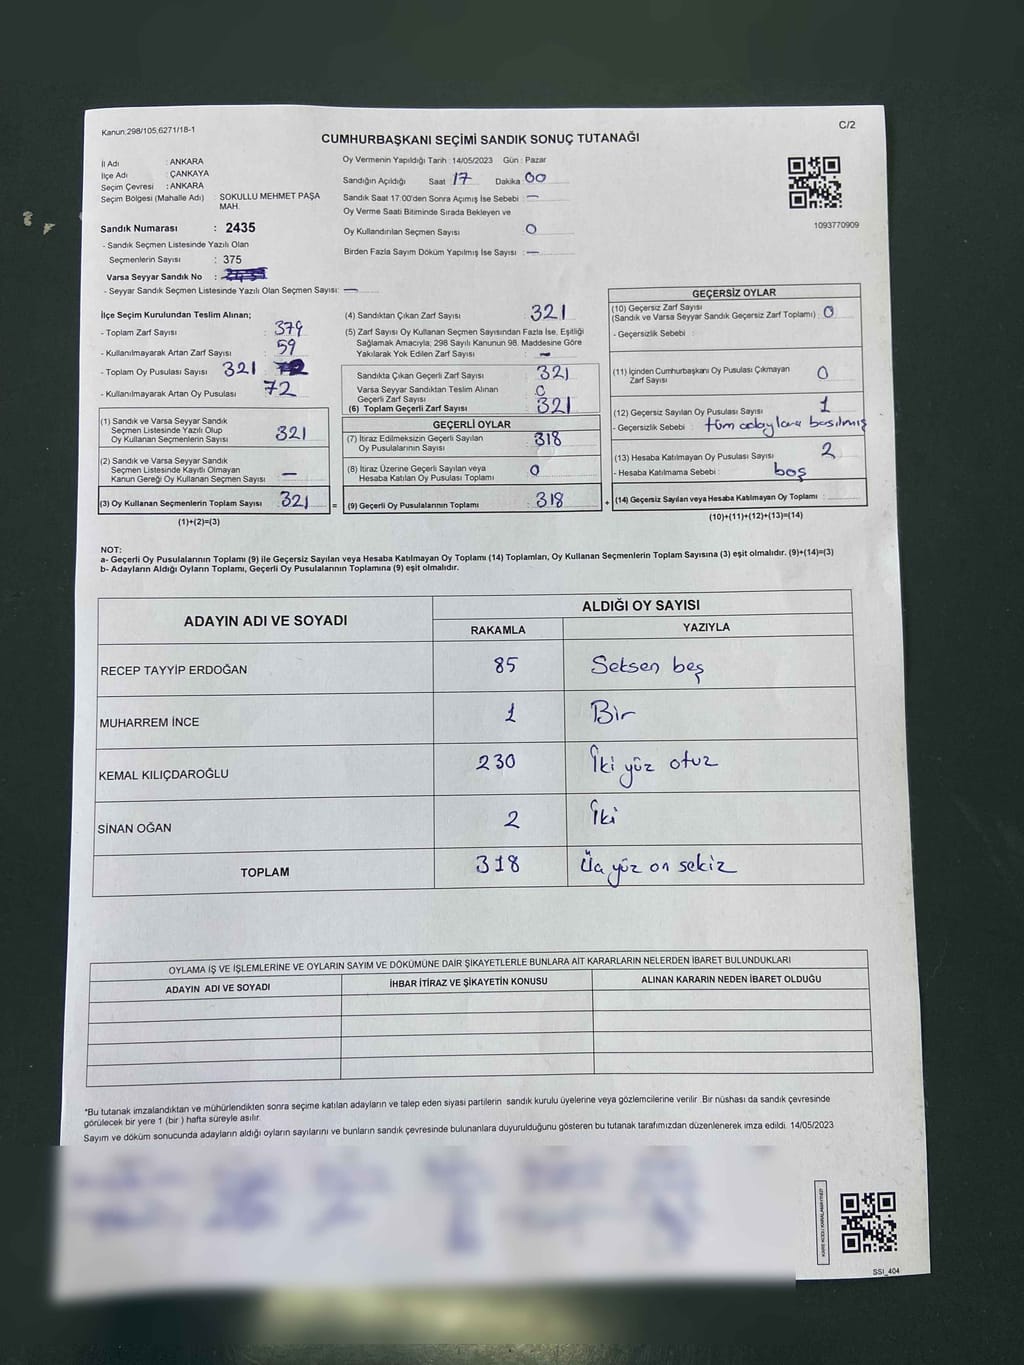 Kanun:298/105,6271/18-1
C/2
CUMHURBAŞKANI SEÇİMİ SANDIK SONUÇ TUTANAĞI
İl Adı : ANKARA
İlçe Adı : ÇANKAYA
Seçim Çevresi : ANKARA
Seçim Bölgesi (Mahalle Adı) : SOKULLU MEHMET PAŞA
MAH.
Sandık Numarası : 2435
- Sandık Seçmen Listesinde Yazılı Olan
Seçmenlerin Sayısı : 375
Varsa Seyyar Sandık No :
- Seyyar Sandık Seçmen Listesinde Yazılı Olan Seçmen Sayısı: —
Oy Vermenin Yapıldığı Tarih : 14/05/2023 Gün : Pazar
Sandığın Açıldığı Saat 17 Dakika 00
Sandık Saat 17:00'den Sonra Açımış İse Sebebi : —
Oy Verme Saati Bitiminde Sırada Bekleyen ve
Oy Kullandırılan Seçmen Sayısı : 0
Birden Fazla Sayım Döküm Yapılmış İse Sayısı : —
1093770909
İlçe Seçim Kurulundan Teslim Alınan;
- Toplam Zarf Sayısı : 379
- Kullanılmayarak Artan Zarf Sayısı : 59
- Toplam Oy Pusulası Sayısı 321
- Kullanılmayarak Artan Oy Pusulası : 72
(1) Sandık ve Varsa Seyyar Sandık
Seçmen Listesinde Yazılı Olup
Oy Kullanan Seçmenlerin Sayısı : 321
(2) Sandık ve Varsa Seyyar Sandık
Seçmen Listesinde Kayıtlı Olmayan
Kanun Gereği Oy Kullanan Seçmen Sayısı : —
(3) Oy Kullanan Seçmenlerin Toplam Sayısı : 321 =
(1)+(2)=(3)
(4) Sandıktan Çıkan Zarf Sayısı : 321
(5) Zarf Sayısı Oy Kullanan Seçmen Sayısından Fazla İse, Eşitliği
Sağlamak Amacıyla; 298 Sayılı Kanunun 98. Maddesine Göre
Yakılarak Yok Edilen Zarf Sayısı : —
Sandıkta Çıkan Geçerli Zarf Sayısı : 321
Varsa Seyyar Sandıktan Teslim Alınan
Geçerli Zarf Sayısı : 0
(6) Toplam Geçerli Zarf Sayısı : 321
GEÇERLİ OYLAR
(7) İtiraz Edilmeksizin Geçerli Sayılan
Oy Pusulalarının Sayısı : 318
(8) İtiraz Üzerine Geçerli Sayılan veya
Hesaba Katılan Oy Pusulası Toplamı : 0
(9) Geçerli Oy Pusulalarının Toplamı : 318 +
GEÇERSİZ OYLAR
(10) Geçersiz Zarf Sayısı
(Sandık ve Varsa Seyyar Sandık Geçersiz Zarf Toplamı) : 0
- Geçersizlik Sebebi :
(11) İçinden Cumhurbaşkanı Oy Pusulası Çıkmayan
Zarf Sayısı : 0
(12) Geçersiz Sayılan Oy Pusulası Sayısı : 1
- Geçersizlik Sebebi : tüm adaylara basılmış
(13) Hesaba Katılmayan Oy Pusulası Sayısı : 2
- Hesaba Katılmama Sebebi : boş
(14) Geçersiz Sayılan veya Hesaba Katılmayan Oy Toplamı :
(10)+(11)+(12)+(13)=(14)
NOT:
a- Geçerli Oy Pusulalarının Toplamı (9) ile Geçersiz Sayılan veya Hesaba Katılmayan Oy Toplamı (14) Toplamları, Oy Kullanan Seçmenlerin Toplam Sayısına (3) eşit olmalıdır. (9)+(14)=(3)
b- Adayların Aldığı Oyların Toplamı, Geçerli Oy Pusulalarının Toplamına (9) eşit olmalıdır.
ADAYIN ADI VE SOYADI
ALDIĞI OY SAYISI
RAKAMLA YAZIYLA
RECEP TAYYİP ERDOĞAN 85 Seksen beş
MUHARREM İNCE 1 Bir
KEMAL KILIÇDAROĞLU 230 İki yüz otuz
SİNAN OĞAN 2 İki
TOPLAM 318 Üç yüz on sekiz
OYLAMA İŞ VE İŞLEMLERİNE VE OYLARIN SAYIM VE DÖKÜMÜNE DAİR ŞİKAYETLERLE BUNLARA AİT KARARLARIN NELERDEN İBARET BULUNDUKLARI
ADAYIN ADI VE SOYADI İHBAR İTİRAZ VE ŞİKAYETİN KONUSU ALINAN KARARIN NEDEN İBARET OLDUĞU
*Bu tutanak imzalandıktan ve mühürlendikten sonra seçime katılan adayların ve talep eden siyasi partilerin sandık kurulu üyelerine veya gözlemcilerine verilir. Bir nüshası da sandık çevresinde
görülecek bir yere 1 (bir) hafta süreyle asılır.
Sayım ve döküm sonucunda adayların aldığı oyların sayılarını ve bunların sandık çevresinde bulunanlara duyurulduğunu gösteren bu tutanak tarafımızdan düzenlenerek imza edildi. 14/05/2023
SSI_404